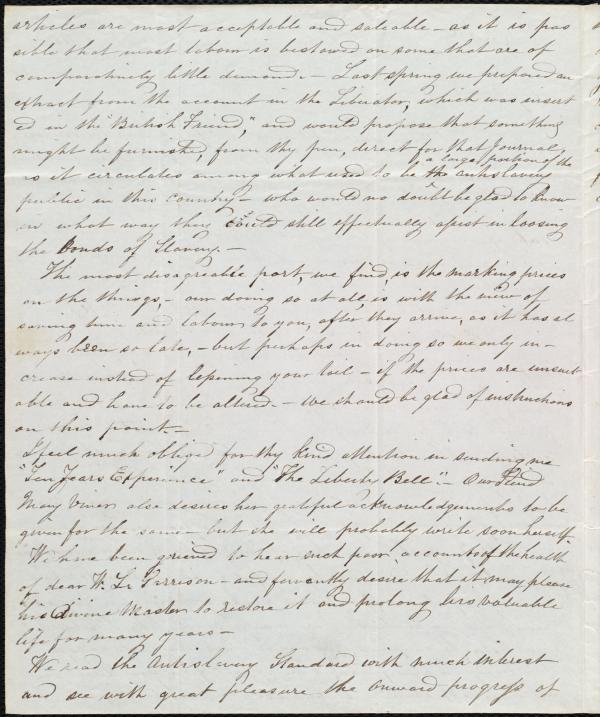 articles are most acceptable and saleable - as it is pos
sible that most labour is bestowed on some that are of
comparatively little demand. - Last spring we prepared an
extract from the account in the Liberator, which was insert
ed in the "British Friend," and would propose that something
might be furnished, from thy pen, direct for that Journal,
as it circulates among what used to be a large portion of the antislavery
public in this country - who would no doubt be glad to know
in what way they could still effectually assist in loosing
the Bonds of Slavery. -
The most disagreeable part, we find, is the marking prices
on the things, - our doing so at all, is with the view of
saving time and labour to you, after they arrive, as it has al
ways been so late, - but perhaps in doing so we only in-
crease instead of lessening your toil - if the prices are unsuit
able and have to be altered. - We should be glad of instructions
on this point. -
I feel much obliged for thy kind attention in sending me
"Ten Years Experience" and "The Liberty Bell". - Our friend
Mary also desires her grateful acknowledgements to be
given for the same - but she will probably write soon herself.
We have been grieved to hear such poor accounts of the health
of dear W. L. Garrison - and fervently desire that it may please
his Divine Master to restore it and prolong his valuable
life for many years -
We read the Antislavery Standard with much interest
and see with great pleasure the onward progress of